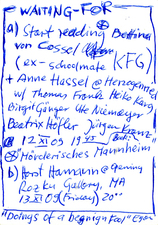 WAITING-FOR
a) Start reading Bettina
von Cossel
(ex-schoolmate KFG)
+ Anne Hassel @ Herzogenried
w/ Thomas Franke Heike Karg
Birgit Gänger Ute Niemeyer
Beatrix Höfler Jürgen Kranz
12 XI 09 19
"Mörderisches Mannheim"
b) Horst Hamann @ opening
Rozku Gallery, MA
13 XI 09 (Friday) 20°°
"Doings of a Design Fool" Egon